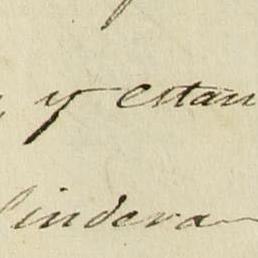 y estan
linderan